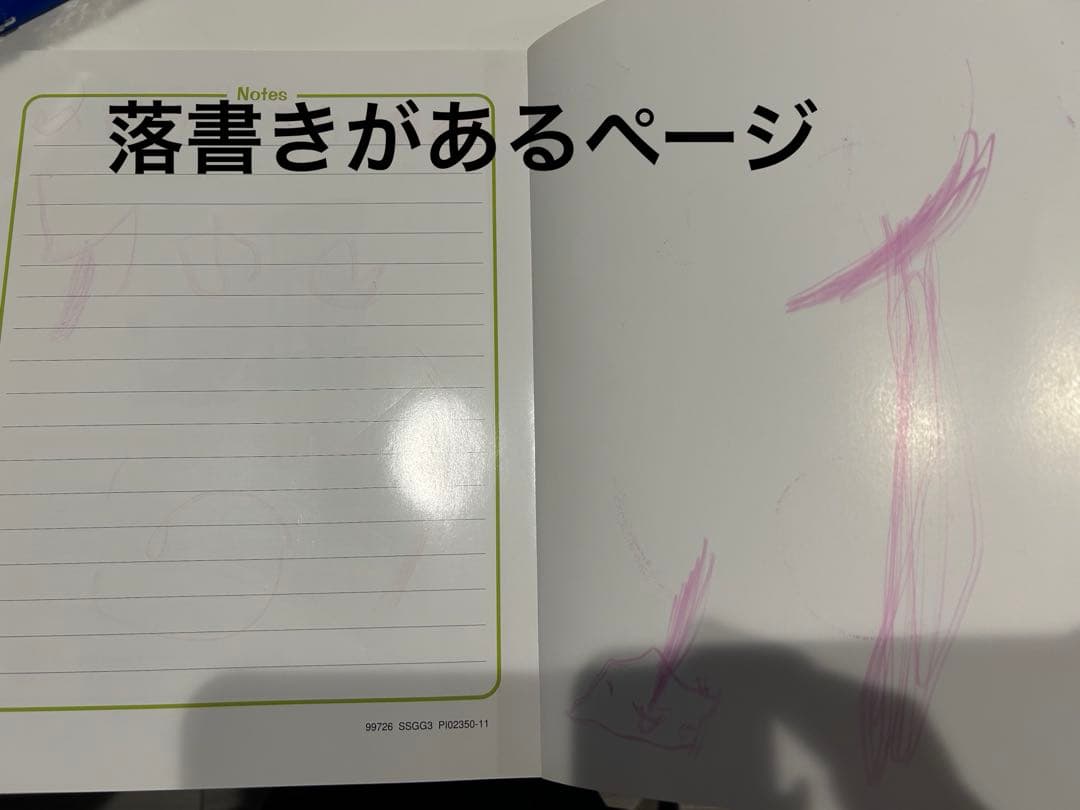 Notes
落書きがあるページ
99726 SSGG3 PI02350-11